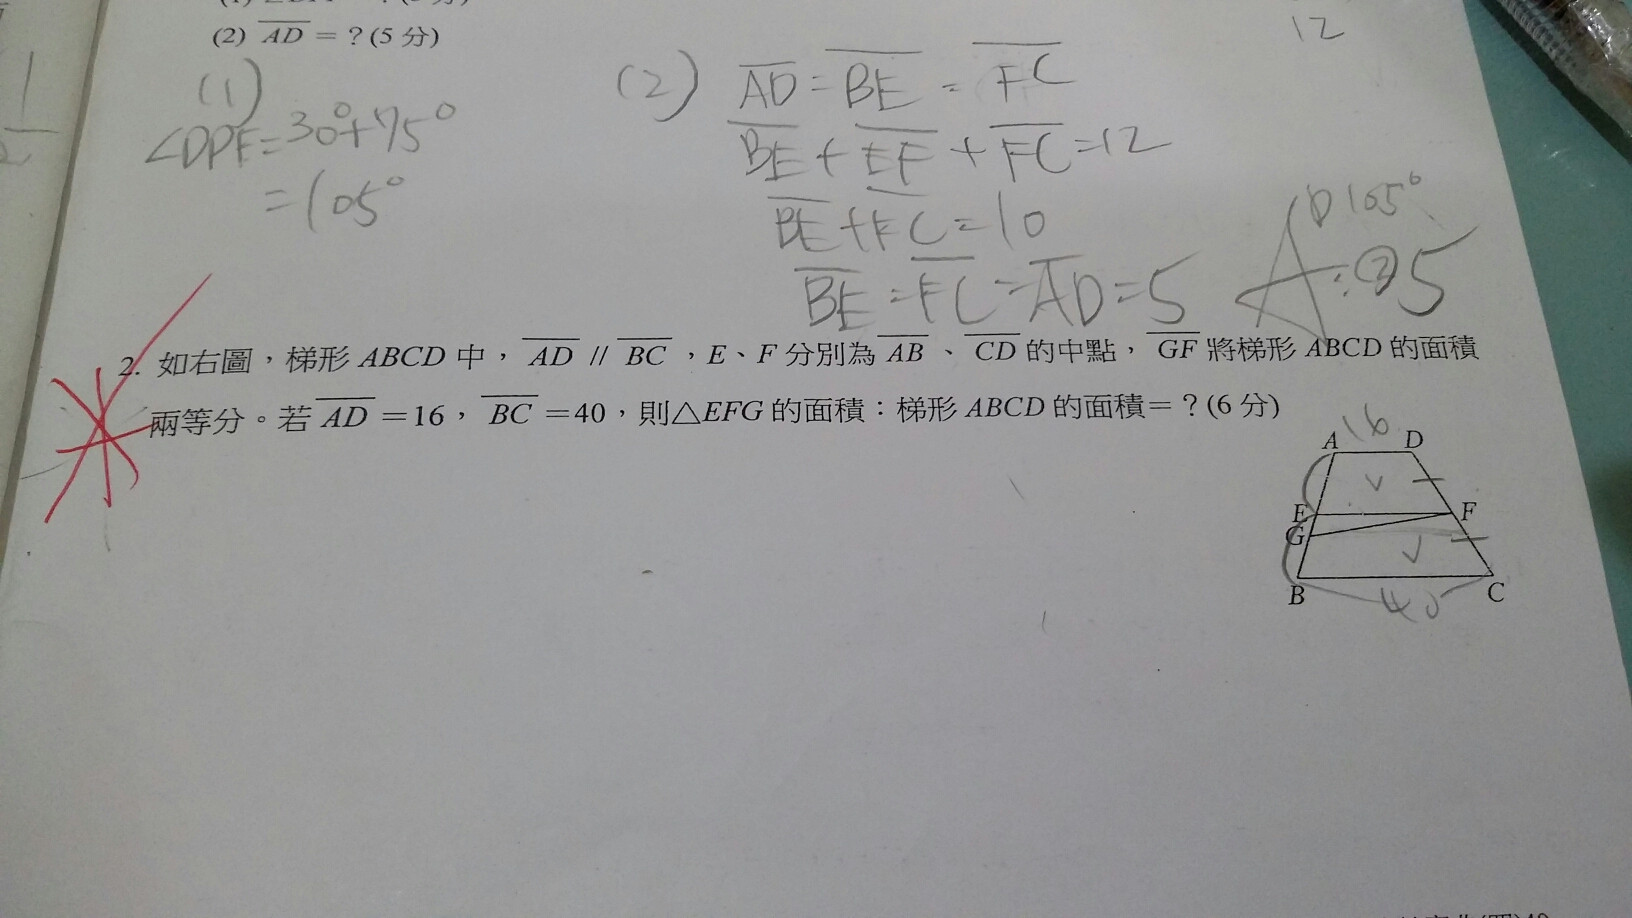 (2) AD = ? (5 分)
12
(1)
∠DPF=30°+75°
=105°
(2) AD=BE=FC
BE+EF+FC=12
BE+FC=10
BE=FC=AD=5
A:① 105°
② 5
2. 如右圖，梯形 ABCD 中，AD // BC，E、F 分別為 AB、CD 的中點，GF 將梯形 ABCD 的面積
兩等分。若 AD =16，BC =40，則△EFG 的面積：梯形 ABCD 的面積=？(6 分)
A 16 D
E F
G
B 40 C